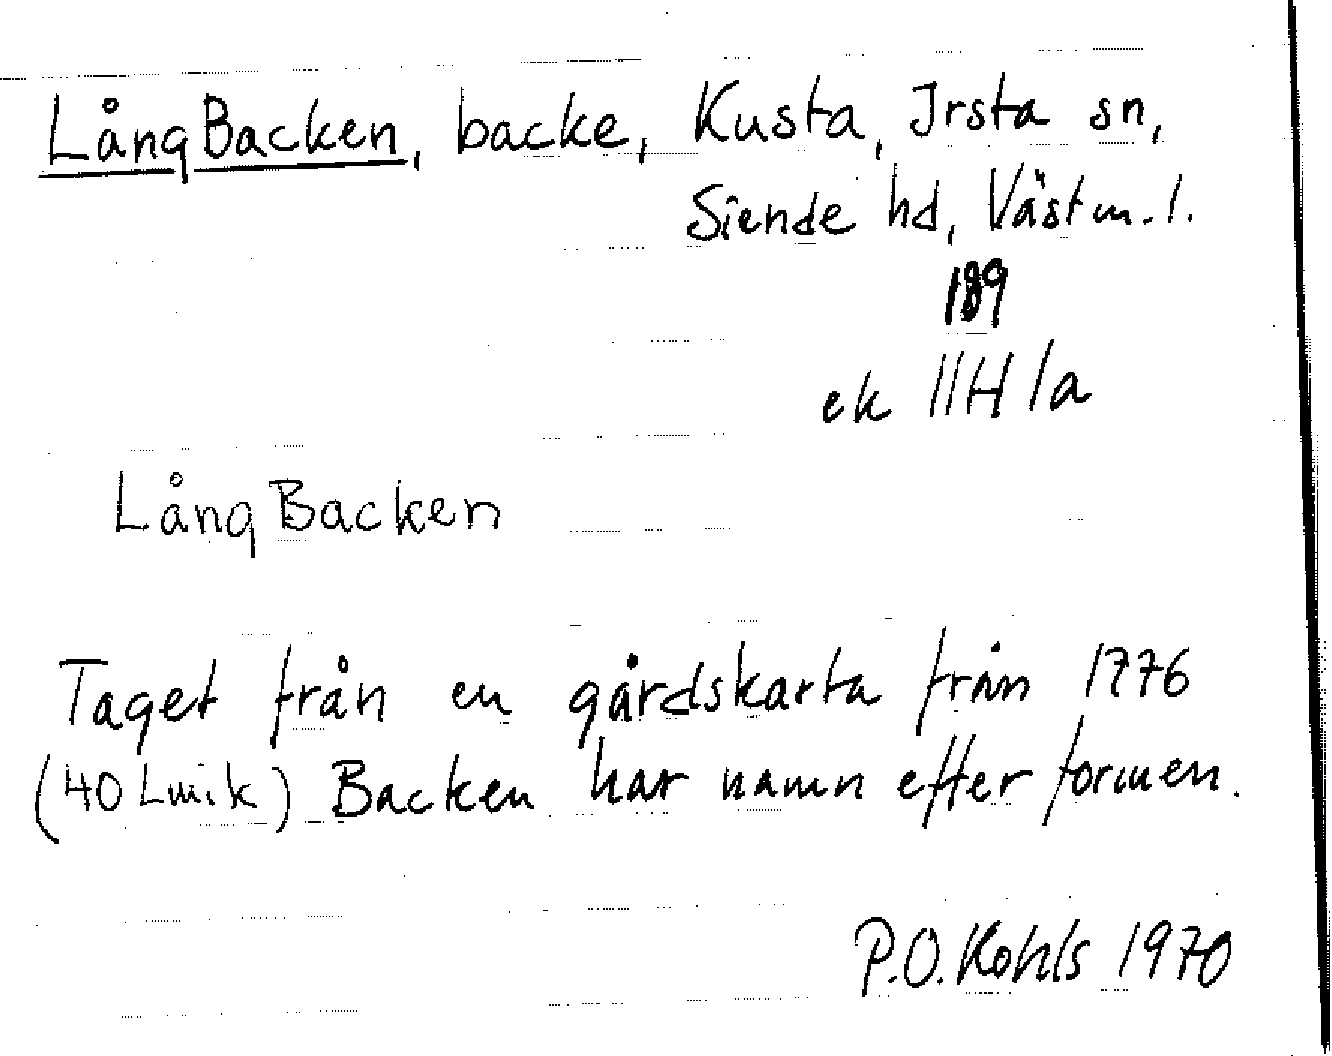 LångBacken, backe, Kusta, Irsta sn,
Siende hd, Västm.l.
189
ek 11H 1a
LångBacken
Taget från en gårdskarta från 1776
(40 Lmik) Backen har namn efter formen.
P.O. Kohls 1970